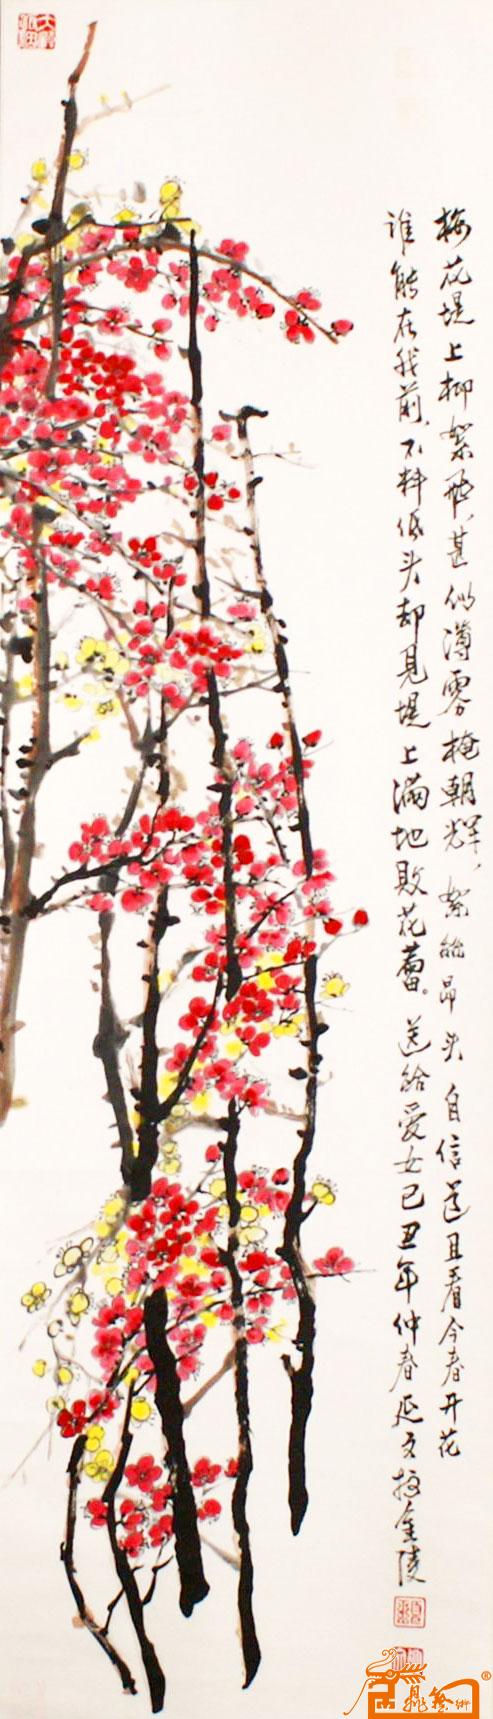 梅花堤上柳絮飛,甚似薄雾掩朝辉,絮能昂头自信道且看今春开花
谁能在我前,不料低头却見堤上满地败花蕾。送给爱女己丑年仲春延文於金陵